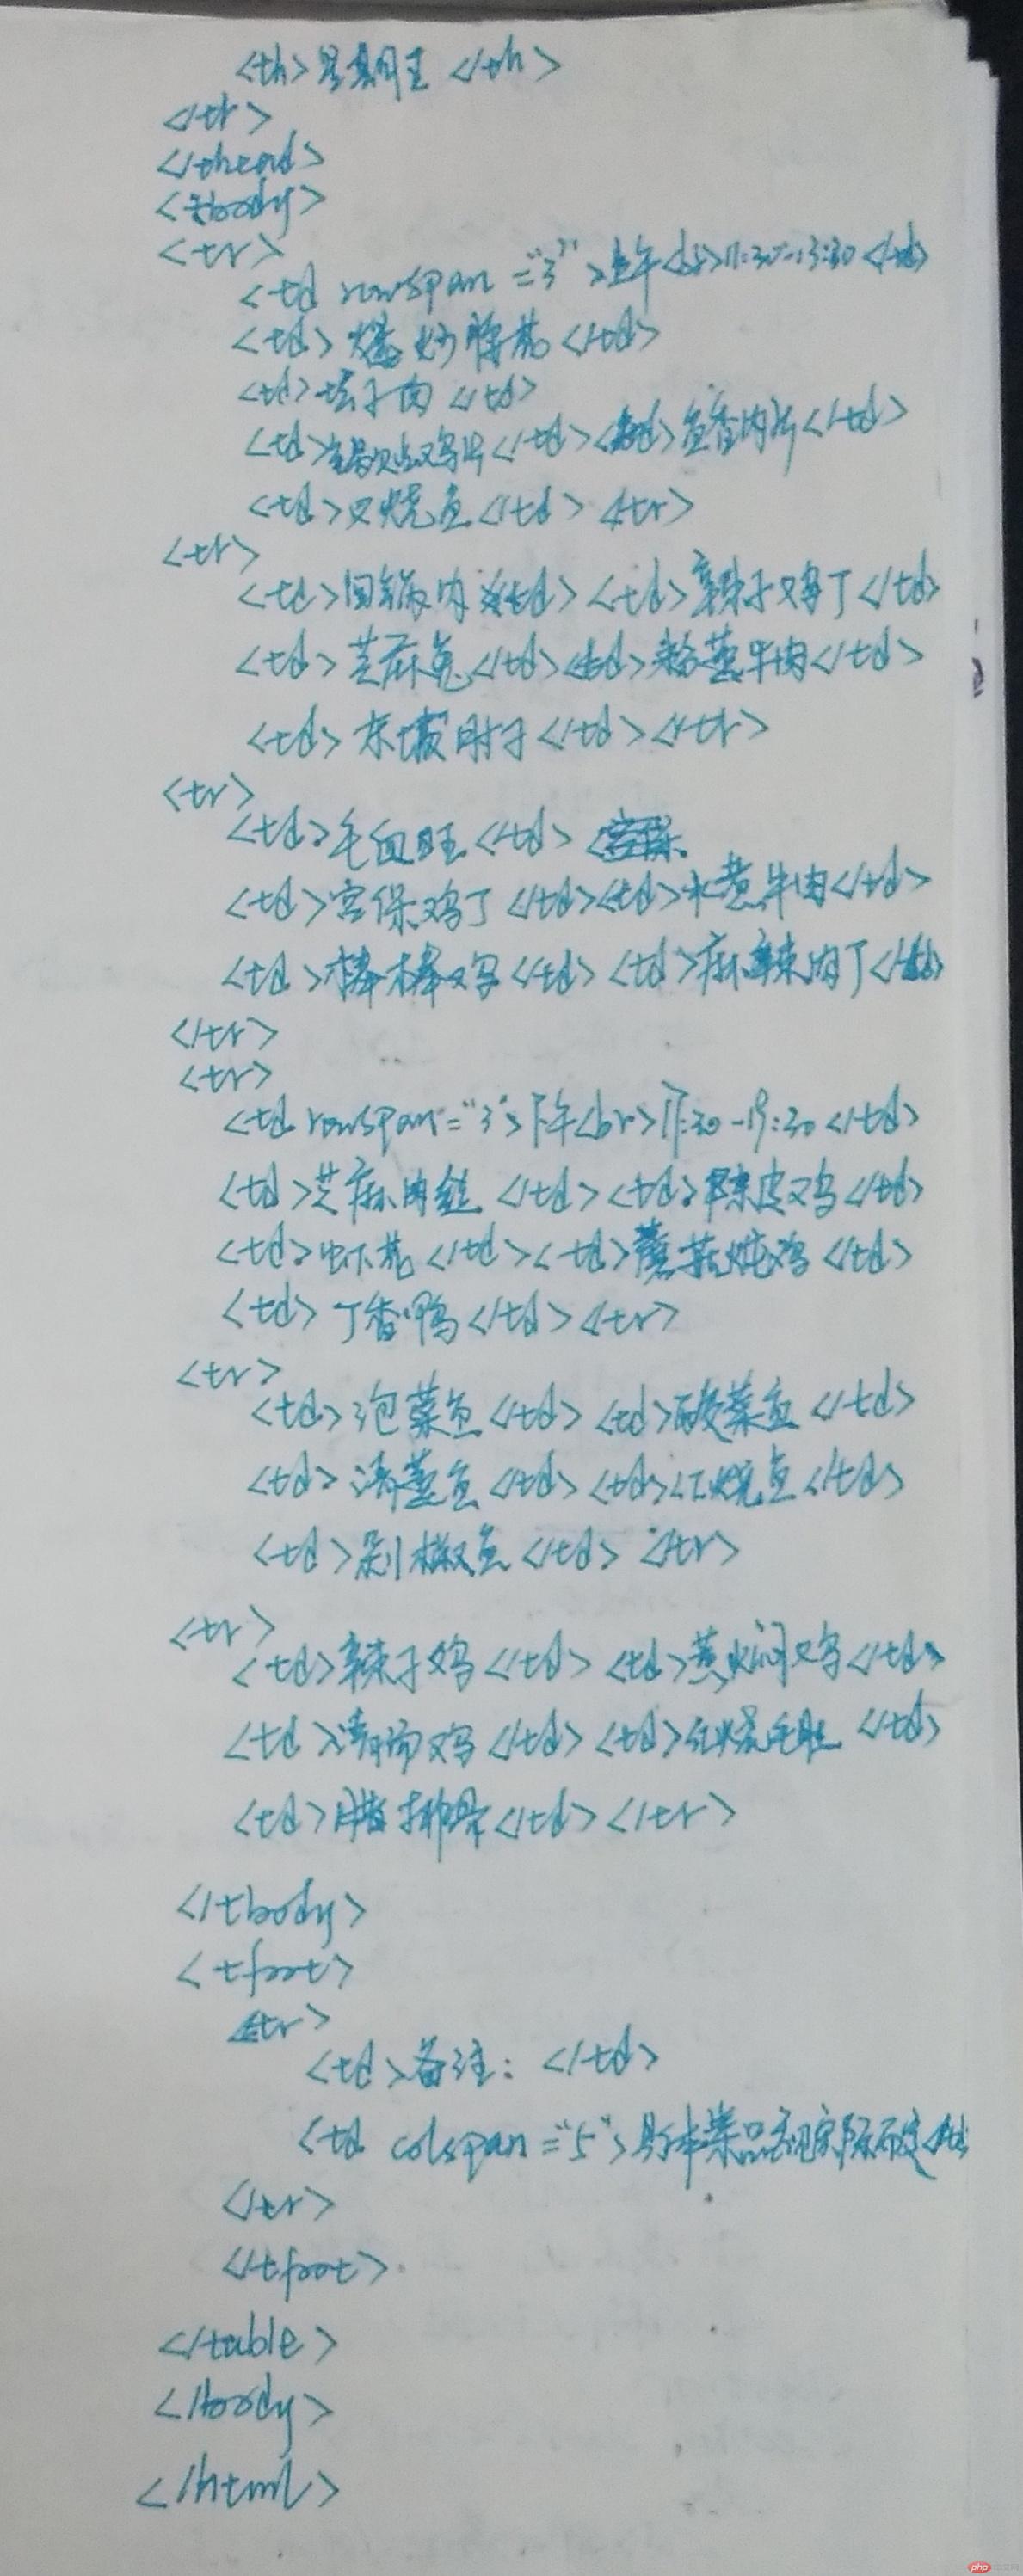 <th>星期五</th>
</tr>
</thead>
<tbody>
<tr>
<td rowspan="3">上午 11:30-13:30</td>
<td>爆炒</td>
<td>坛子肉</td>
<td></td><td>鱼香肉片</td>
<td>叉烧鱼</td></tr>
<tr>
<td>回锅肉</td><td>辣子鸡丁</td>
<td>芝麻兔</td><td>粉蒸牛肉</td>
<td>东坡肘子</td></tr>
<tr>
<td>毛血旺</td>
<td>宫保鸡丁</td><td>水煮牛肉</td>
<td>棒棒鸡</td><td>麻辣肉丁</td>
</tr>
<tr>
<td rowspan="3">下午 17:30-19:30</td>
<td>芝麻肉丝</td><td>陈皮鸡</td>
<td></td><td>蘑菇炖鸡</td>
<td>丁香鸭</td></tr>
<tr>
<td>泡菜鱼</td><td>酸菜鱼</td>
<td>清蒸鱼</td><td>红烧鱼</td>
<td>剁椒鱼</td></tr>
<tr>
<td>辣子鸡</td><td>黄焖鸡</td>
<td>清汤鸡</td><td>红烧毛肚</td>
<td>腊排骨</td></tr>
</tbody>
<tfoot>
<tr>
<td>备注:</td>
<td colspan="5">具体菜品视实际而定</td>
</tr>
</tfoot>
</table>
</body>
</html>
php